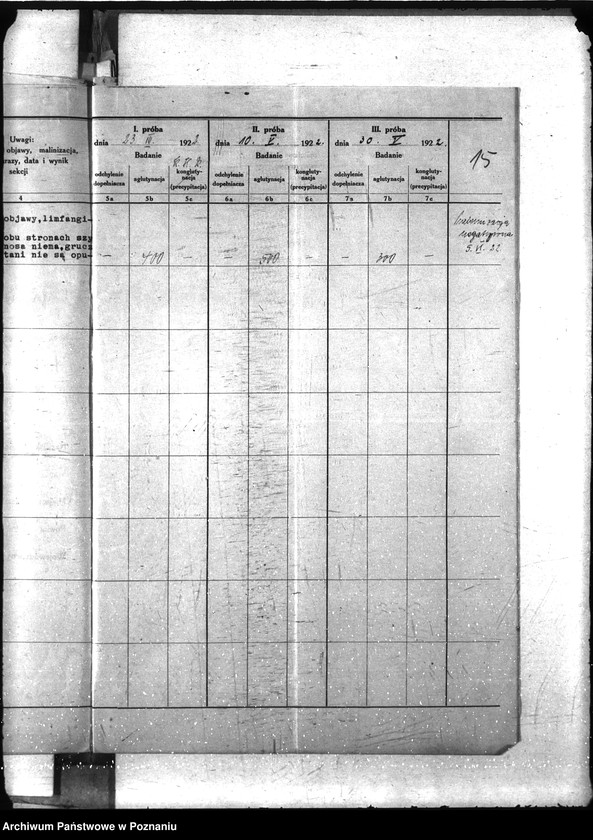 Uwagi:
objawy, malinizacja,
razy, data i wynik
sekcji
I. próba
dnia 23 1922
Badanie
odchylenie dopełniacza
aglutynacja
konglutynacja (precypitacja)
II. próba
dnia 10. V. 1922.
Badanie
odchylenie dopełniacza
aglutynacja
konglutynacja (precypitacja)
III. próba
dnia 30. V 1922.
Badanie
odchylenie dopełniacza
aglutynacja
konglutynacja (precypitacja)
15
4 5a 5b 5c 6a 6b 6c 7a 7b 7c
objawy,limfangi-
obu stronach szy
nosa niema,grucz
tani nie są opu-
— 400 — — 500 — — 300 —
negatywna
5. VI. 22
Archiwum Państwowe w Poznaniu